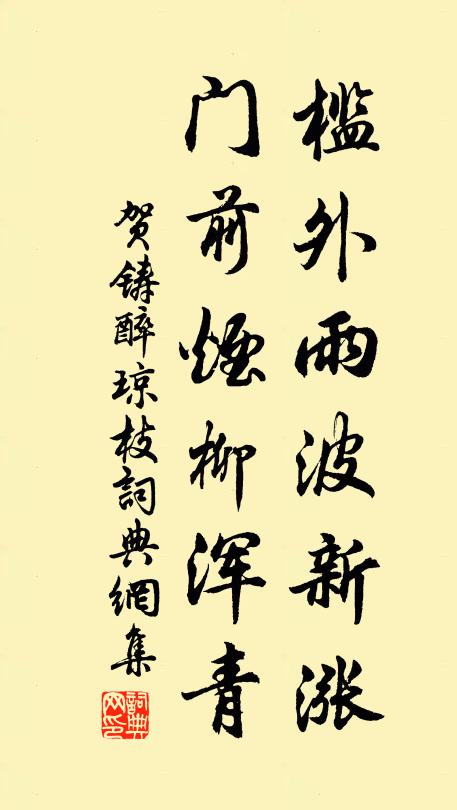 槛外雨波新涨
门前烟柳浑青
贺铸醉琼枝词典網集
詞典网印